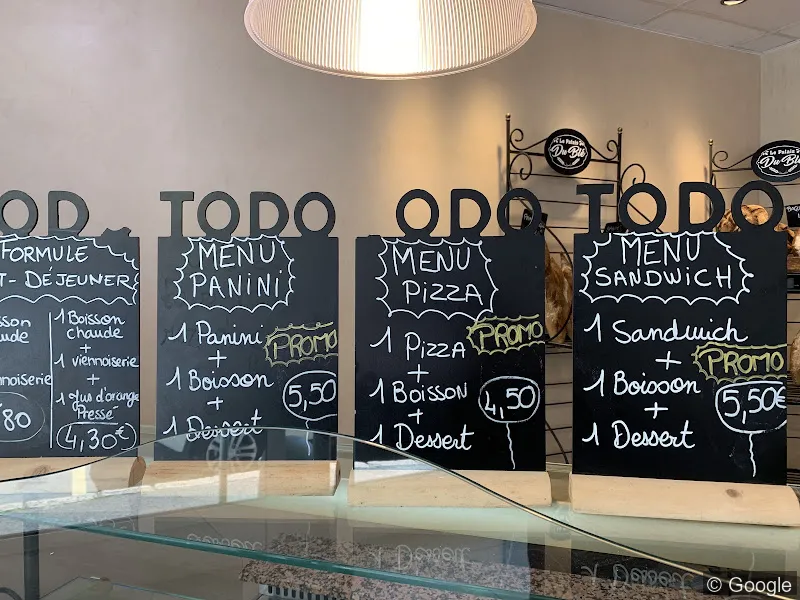 FORMULE
T-DÉJEUNER
1 Boisson
chaude
+
1 viennoiserie
+
1 Jus d'orange
Pressé
4,30€
TODO
MENU
PANiNi
1 Panini
+
1 Boisson
+
1 Dessert
PROMO
5,50
ODO
MENU
PiZZA
1 Pizza
+
1 Boisson
+
1 Dessert
PROMO
4,50
TODO
MENU
SANDWiCH
1 Sandwich
+
1 Boisson
+
1 Dessert
PROMO
5,50€
Le Palais
Du Blé
Le Palais
Du Blé
1 Dessert
© Google